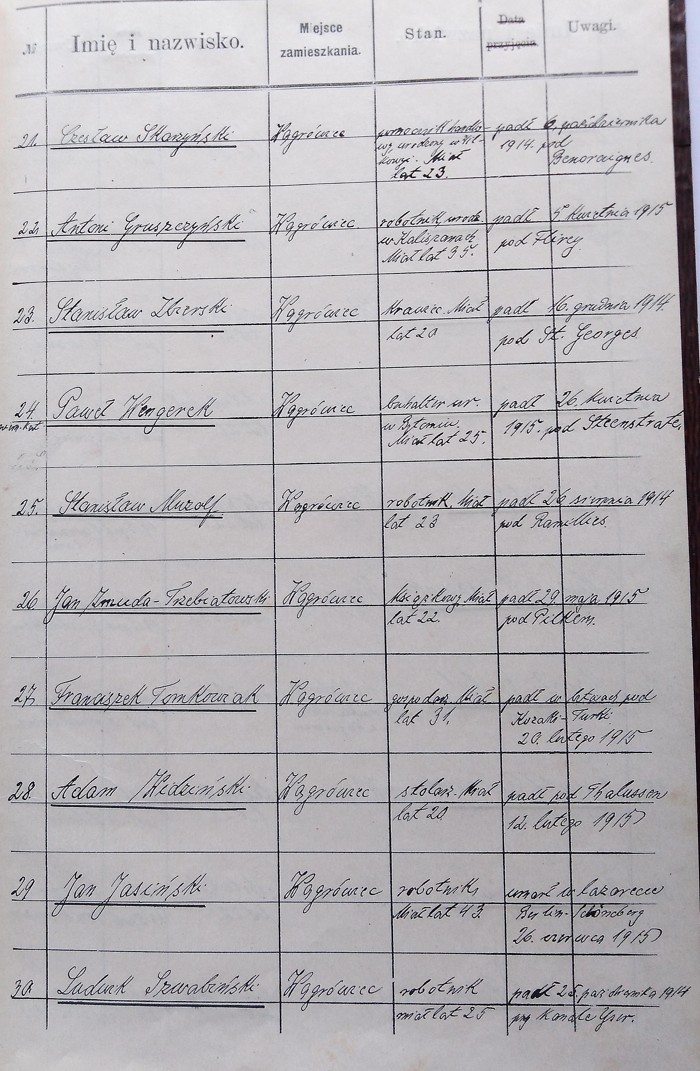 № Imię i nazwisko. Miejsce zamieszkania. Stan. Data przyjęcia. Uwagi.
21. Czesław Skarzyński Wągrówiec pomocnik handlo- padł 6. października
wy, urodzony w 1914. pod
Miał Benoraignes.
lat 23.
22. Antoni Gruszczyński Wągrówiec robotnik urodz. padł 5 kwietnia 1915
w Kaliszanach pod Flirey.
Miał lat 35.
23. Stanisław Zbierski Wągrówiec krawiec. Miał padł 16. grudnia 1914.
lat 20 pod St. Georges
24. Paweł Wengerek Wągrówiec buhalter ur. padł 26. kwietnia
w Bytomiu. 1915. pod Steenstrate.
Miał lat 25.
25. Stanisław Muzolf Wągrówiec robotnik, Miał padł 26 sierpnia 1914
lat 23 pod Ramillies.
26. Jan Żmuda-Trzebiatowski Wągrówiec Książkowy, Miał padł 29. maja 1915
lat 22. pod Pilkem.
27. Franciszek Tomkowiak Wągrówiec gospodarz. Miał padł w pod
lat 31. Kozaki-Turki
20. lutego 1915
28. Adam Wedziński Wągrówiec stolarz. Miał padł pod Thalussen
lat 20 12. lutego 1915
29 Jan Jasiński Wągrówiec robotnik, umarł w lazarecie
Miał lat 43. Berlin-Schöneberg
26. czerwca 1915
30. Ludwik Szwabiński Wągrówiec robotnik padł 25. października 1914
miał lat 25 przy Kanale Yser.